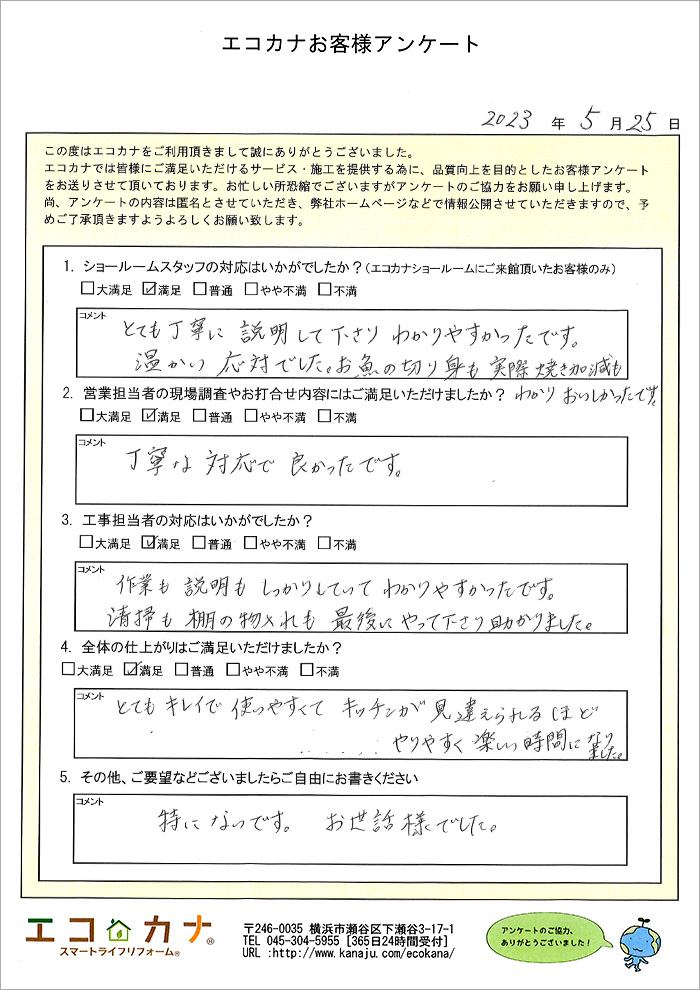 エコカナお客様アンケート
2023 年 5 月 25 日
この度はエコカナをご利用頂きまして誠にありがとうございました。
エコカナでは皆様にご満足いただけるサービス・施工を提供する為に、品質向上を目的としたお客様アンケート
をお送りさせて頂いております。お忙しい所恐縮でございますがアンケートのご協力をお願い申し上げます。
尚、アンケートの内容は匿名とさせていただき、弊社ホームページなどで情報公開させていただきますので、予
めご了承頂きますようよろしくお願い致します。
1. ショールームスタッフの対応はいかがでしたか？（エコカナショールームにご来館頂いたお客様のみ）
□大満足 ☑満足 □普通 □やや不満 □不満
コメント
とても丁寧に 説明して下さり わかりやすかったです。
温かい 応対でした。お魚の切り身も 実際 焼き加減も
わかり おいしかったです。
2. 営業担当者の現場調査やお打合せ内容にはご満足いただけましたか？
□大満足 ☑満足 □普通 □やや不満 □不満
コメント
丁寧な 対応で 良かったです。
3. 工事担当者の対応はいかがでしたか？
□大満足 ☑満足 □普通 □やや不満 □不満
コメント
作業も 説明も しっかりしていて わかりやすかったです。
清掃も 棚の物入れも 最後に やって下さり 助かりました。
4. 全体の仕上がりはご満足いただけましたか？
□大満足 ☑満足 □普通 □やや不満 □不満
コメント
とても キレイで 使いやすくて キッチンが 見違えられるほど
やりやすく 楽しい時間に なり
ました。
5. その他、ご要望などございましたらご自由にお書きください
コメント
特にないです。 お世話様でした。
エコカナ®
スマートライフリフォーム®
〒246-0035 横浜市瀬谷区下瀬谷3-17-1
TEL 045-304-5955 [365日24時間受付]
URL :http://www.kanaju.com/ecokana/
アンケートのご協力、
ありがとうございました！